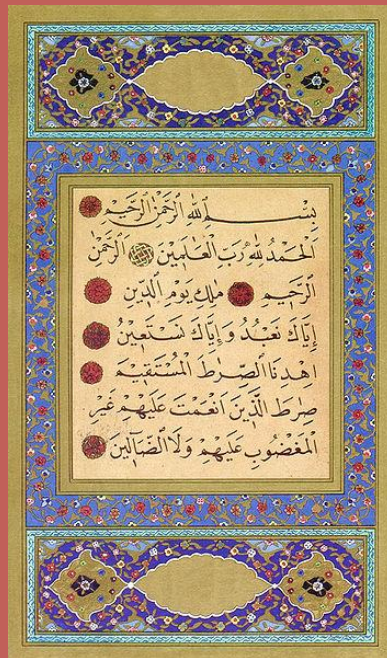 بِسْمِ ٱللَّهِ ٱلرَّحْمَٰنِ ٱلرَّحِيمِ
اَلْحَمْدُ لِلَّهِ رَبِّ ٱلْعَالَمِينَ ٱلرَّحْمَٰنِ
ٱلرَّحِيمِ مَٰلِكِ يَوْمِ ٱلدِّينِ
اِيَّاكَ نَعْبُدُ وَاِيَّاكَ نَسْتَعِينُ
اِهْدِنَا ٱلصِّرَٰطَ ٱلْمُسْتَقِيمَ
صِرَٰطَ ٱلَّذِينَ اَنْعَمْتَ عَلَيْهِمْ غَيْرِ
ٱلْمَغْضُوبِ عَلَيْهِمْ وَلَا ٱلضَّٓالِّينَ